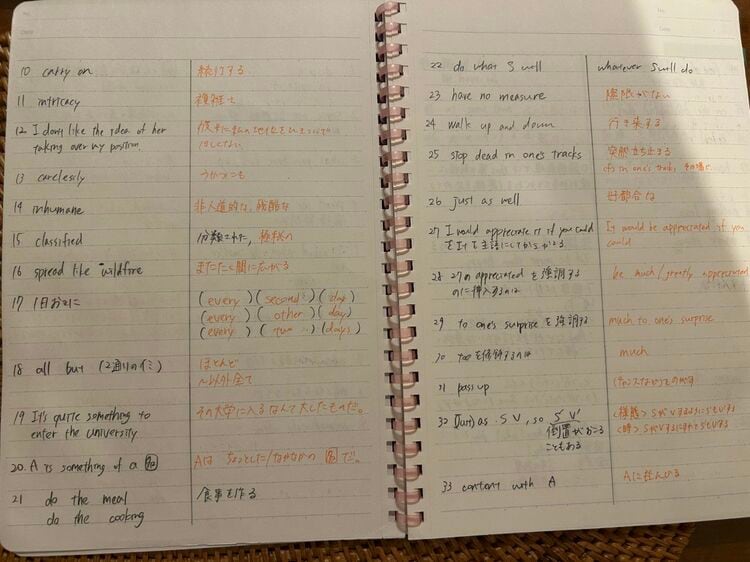 10 carry on 続行する
11 intricacy 複雑さ
12 I don't like the idea of her
taking over my position.
13 carelessly うかつにも
14 inhumane 非人道的な, 残酷な
15 classified 分類された, 極秘の
16 spread like wildfire またたく間に広がる
17 1日おきに (every)(second)(day)
(every)(other)(day)
(every)(two)(days)
18 all but (2通りのイミ) ほとんど
〜以外全て
19 It's quite something to
enter the university その大学に入るなんて大したものだ。
20. A is something of a 名 Aは ちょっとした/なかなかの 名 だ。
21 do the meal 食事を作る
do the cooking
22 do what S will whatever S will do
23 have no measure 際限がない
24 walk up and down 行き来する
25 stop dead in one's tracks 突然立ち止まる
26 just as well 好都合な
27 I would appreciate it if you could
をItを主語にして It would be appreciated if you
could
28 27のappreciatedを強調する
のに挿入するのは be much/greatly appreciated
29 to one's surpriseを強調する much to one's surprise
30 tooを修飾するのは much
31 pass up
32 (Just) as S V, so S' V'
倒置がおこる
こともある
33 content with A Aに甘んじる